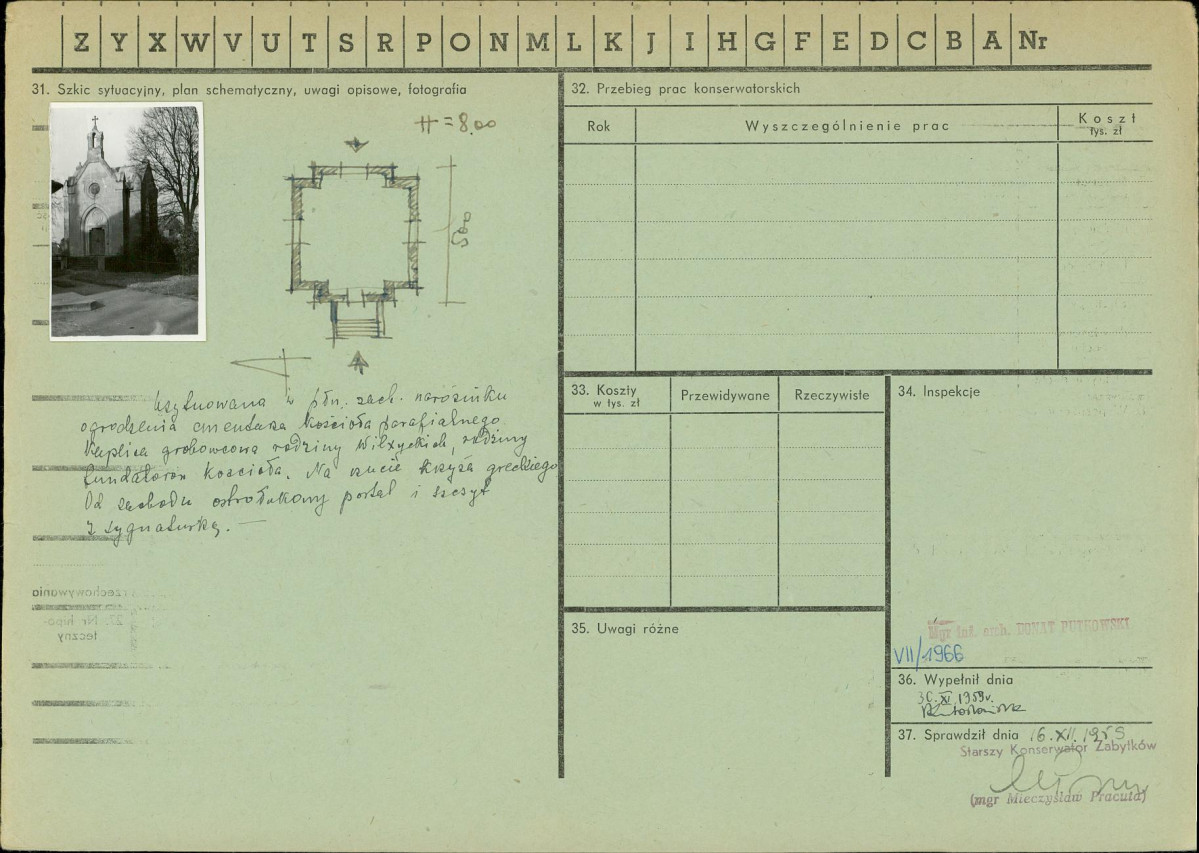 Z Y X W V U T S R P O N M L K J I H G F E D C B A Nr
31. Szkic sytuacyjny, plan schematyczny, uwagi opisowe, fotografia
H = 8.00
Usytuowana w płn. zach. narożniku
ogrodzenia cmentarza kościoła parafialnego.
Kaplica grobowcowa rodziny Wilxyckich, rodziny
fundatorów kościoła. Na rzucie krzyża greckiego
Od zachodu ostrołukowy portal i szczyt
z sygnaturką. —
32. Przebieg prac konserwatorskich
Rok
Wyszczególnienie prac
Koszt
tys. zł
33. Koszty
w tys. zł
Przewidywane
Rzeczywiste
34. Inspekcje
Mgr inż. arch. DONAT PUTKOWSKI
VII/1966
35. Uwagi różne
36. Wypełnił dnia
30.XI.1959r.
37. Sprawdził dnia 16.XII.1959
Starszy Konserwator Zabytków
(mgr Mieczysław Pracuta)
przechowywania
27. Nr hipo-
teczny